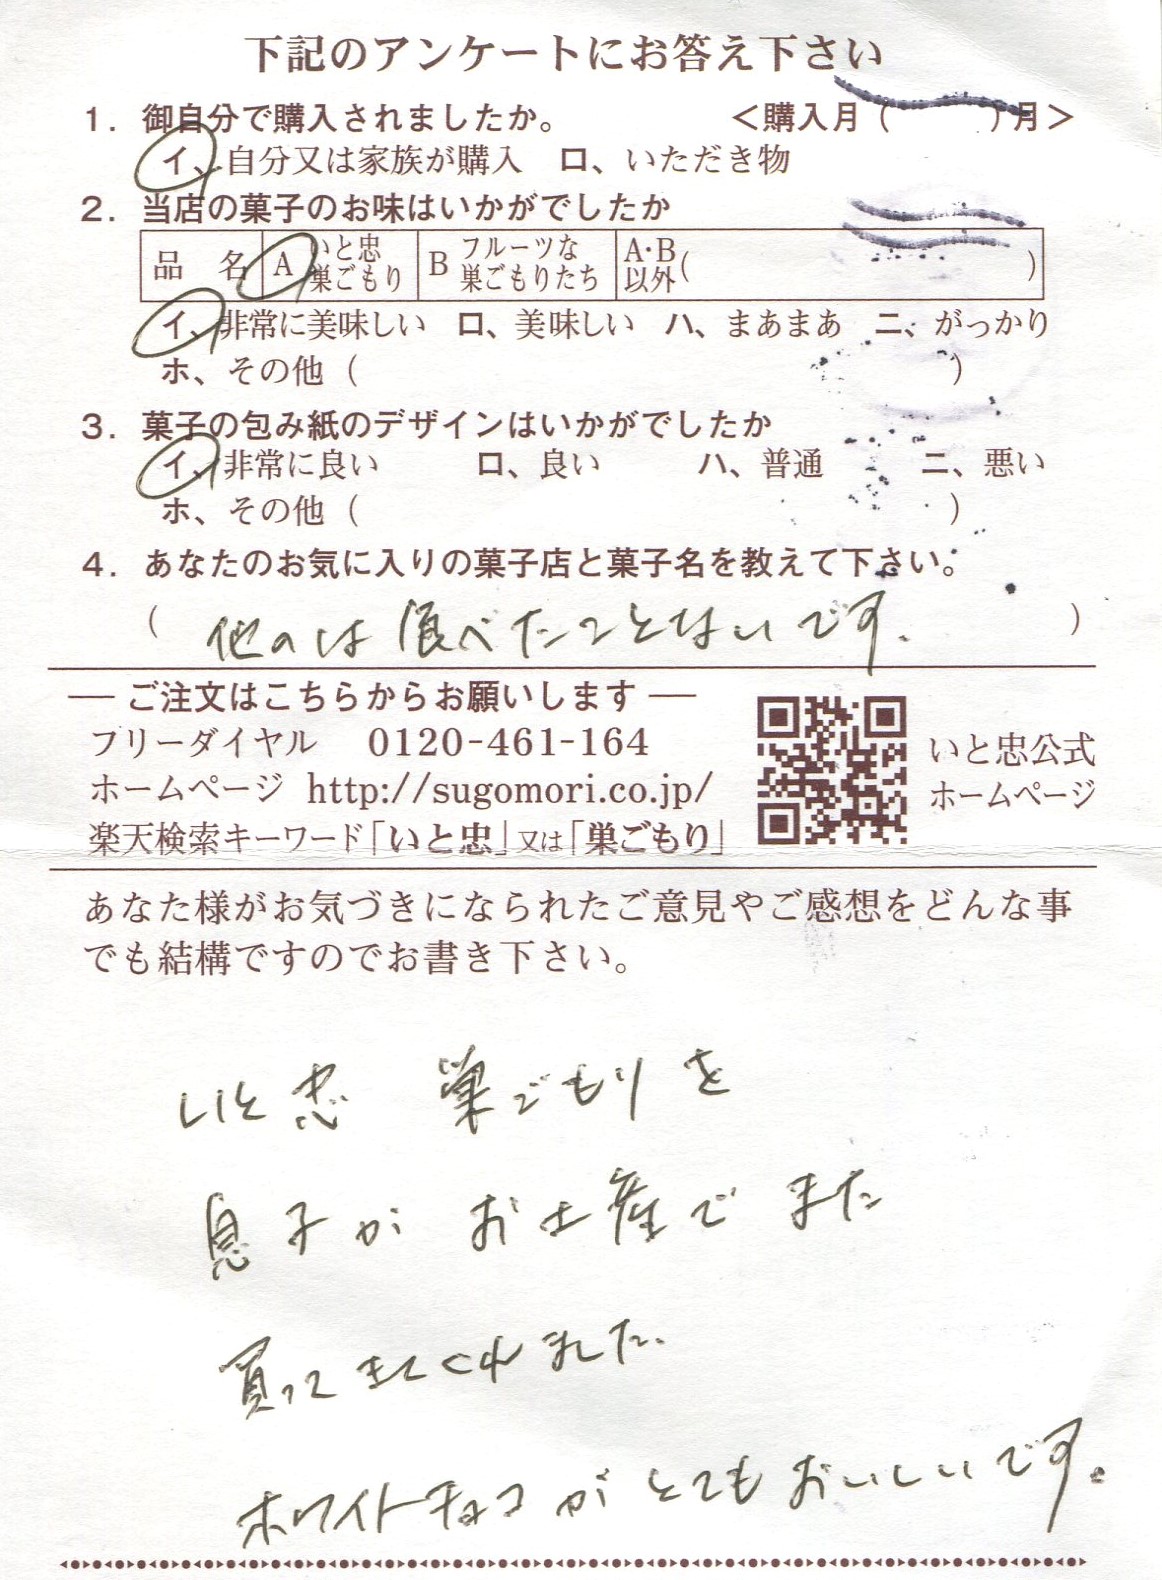 下記のアンケートにお答え下さい
1. 御自分で購入されましたか。 <購入月（ ）月>
イ、自分又は家族が購入 ロ、いただき物
2. 当店の菓子のお味はいかがでしたか
品 名 A いと忠巣ごもり B フルーツな巣ごもりたち A·B以外( )
イ、非常に美味しい ロ、美味しい ハ、まあまあ ニ、がっかり
ホ、その他（ ）
3. 菓子の包み紙のデザインはいかがでしたか
イ、非常に良い ロ、良い ハ、普通 ニ、悪い
ホ、その他（ ）
4. あなたのお気に入りの菓子店と菓子名を教えて下さい。
（他のは食べたことないです。）
― ご注文はこちらからお願いします ―
フリーダイヤル 0120-461-164
ホームページ http://sugomori.co.jp/
楽天検索キーワード「いと忠」又は「巣ごもり」
いと忠公式
ホームページ
あなた様がお気づきになられたご意見やご感想をどんな事
でも結構ですのでお書き下さい。
いと忠 巣ごもりを
息子が お土産で また
買ってきてくれました。
ホワイトチョコがとてもおいしいです。